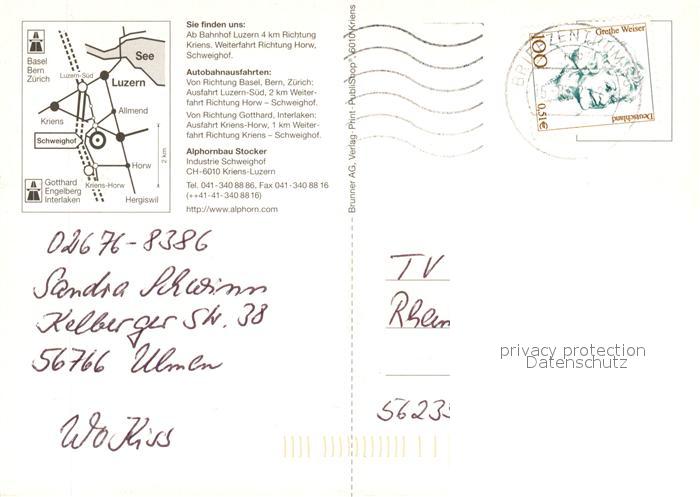 Basel
Bern
Zürich
Luzern-Süd
See
Luzern
Allmend
Kriens
Schweighof
Horw
2 km
Gotthard
Engelberg
Interlaken
Kriens-Horw
Hergiswil
Sie finden uns:
Ab Bahnhof Luzern 4 km Richtung
Kriens. Weiterfahrt Richtung Horw,
Schweighof.
Autobahnausfahrten:
Von Richtung Basel, Bern, Zürich:
Ausfahrt Luzern-Süd, 2 km Weiter-
fahrt Richtung Horw – Schweighof.
Von Richtung Gotthard, Interlaken:
Ausfahrt Kriens-Horw, 1 km Weiter-
fahrt Richtung Kriens – Schweighof.
Alphornbau Stocker
Industrie Schweighof
CH-6010 Kriens-Luzern
Tel. 041-340 88 86, Fax 041-340 88 16
(++41-41-340 88 16)
http://www.alphorn.com
Brunner AG, Verlag · Print · PubliShop · 6010 Kriens
Grethe Weiser
100
0,51€
Deutschland
BRIEFZENTRUM
02676-8386
Sandra Schwinn
Kelberger Str. 38
56766 Ulmen
TV
Rhein
5623
privacy protection
Datenschutz